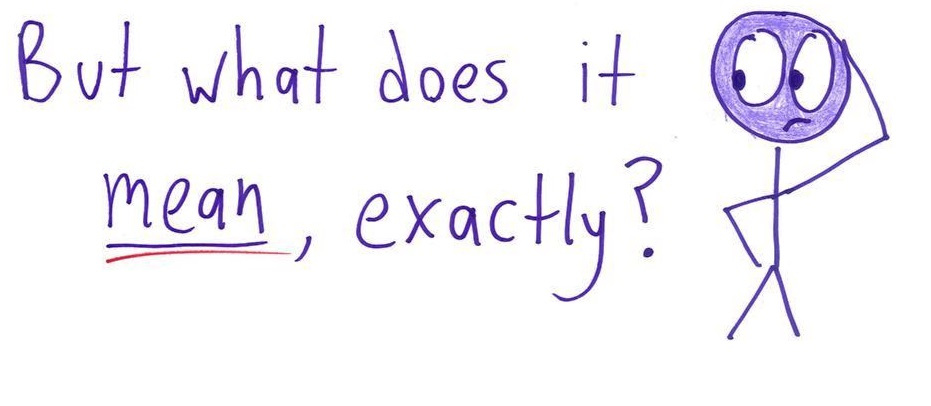 But what does it
mean, exactly?